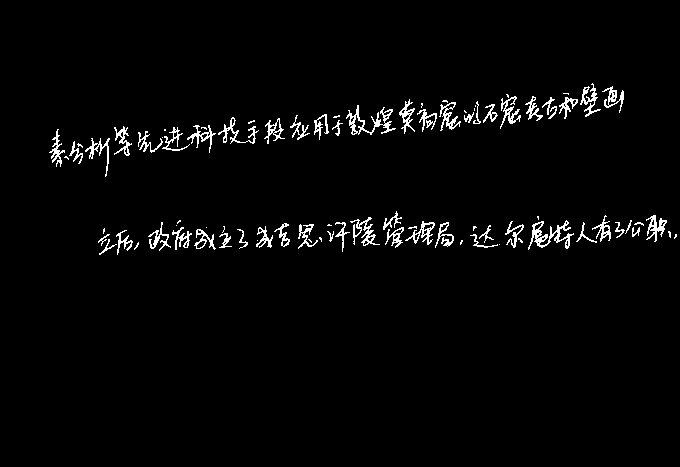 素分析等先进科技手段应用于敦煌莫高窟的石窟考古和壁画
立后,政府成立了成吉思汗陵管理局,达尔扈特人有了公职,